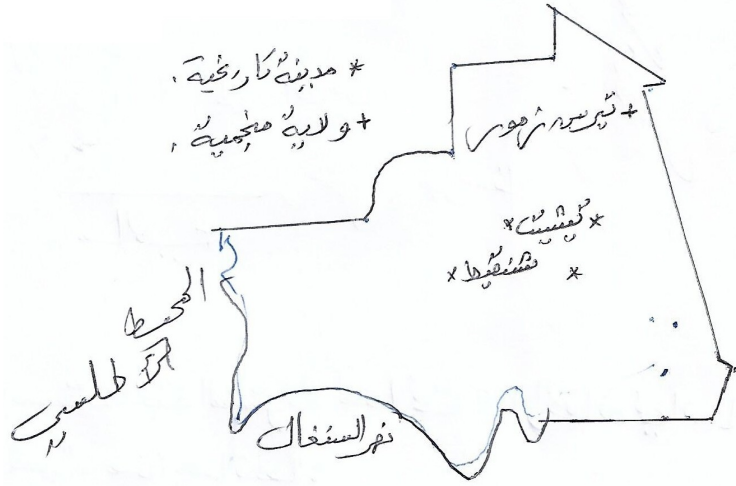 * مدينة تاريخية.
+ ولاية منجمية.
+ تيرس زمور
* تيشيت *
* شنقيط *
المحيط
الأطلسي
نهر السنغال